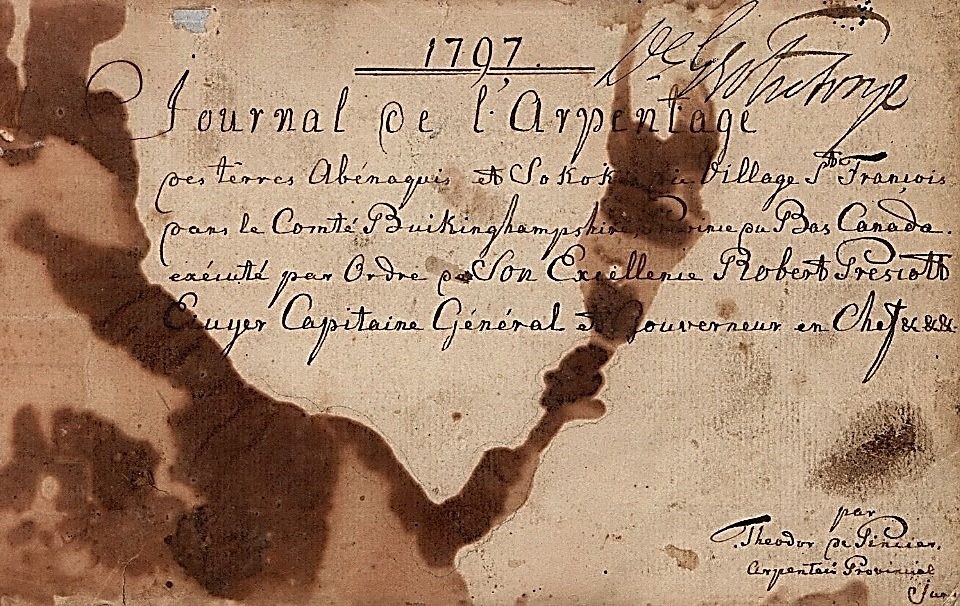 1797.
Journal de l'Arpentage
des terres Abénaquis et Sokokis du Village St François
dans le Comté Buikinghampshire Province du Bas Canada.
exécuté par Ordre de Son Excellence Robert Prescott
Ecuyer Capitaine Général et Gouverneur en Chef &c &c &c.
par
Theodor de Pincier.
Arpenteur Provincial